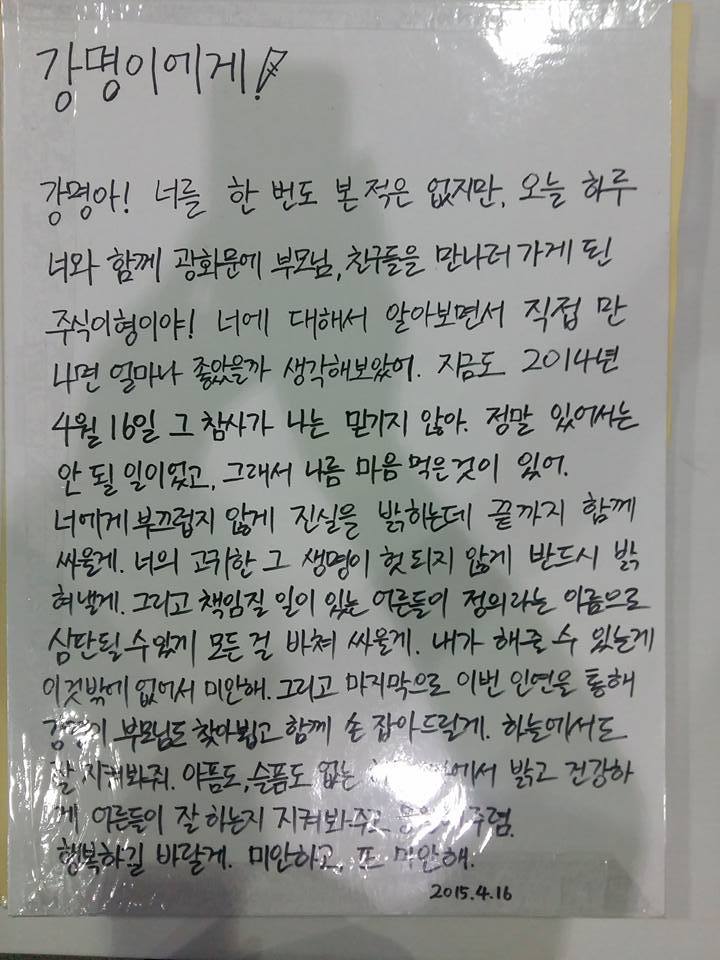 강명이에게!
강명아! 너를 한 번도 본 적은 없지만, 오늘 하루
너와 함께 광화문에 부모님, 친구들을 만나러 가게 된
주식이형이야! 너에 대해서 알아보면서 직접 만
나면 얼마나 좋았을까 생각해보았어. 지금도 2014년
4월 16일 그 참사가 나는 믿기지 않아. 정말 있어서는
안 될 일이었고, 그래서 나름 마음 먹은것이 있어.
너에게 부끄럽지 않게 진실을 밝히는데 끝까지 함께
싸울게. 너의 고귀한 그 생명이 헛되지 않게 반드시 밝
혀낼게. 그리고 책임질 일이 있는 어른들이 정의라는 이름으로
심판될 수 있게 모든 걸 바쳐 싸울게. 내가 해줄 수 있는게
이것밖에 없어서 미안해. 그리고 마지막으로 이번 인연을 통해
강명이 부모님도 찾아뵙고 함께 손 잡아드릴게. 하늘에서도
잘 지켜봐줘. 아픔도, 슬픔도 없는 에서 밝고 건강하
게 어른들이 잘 하는지 지켜봐주고 주렴.
행복하길 바랄게. 미안하고, 또 미안해.
2015.4.16